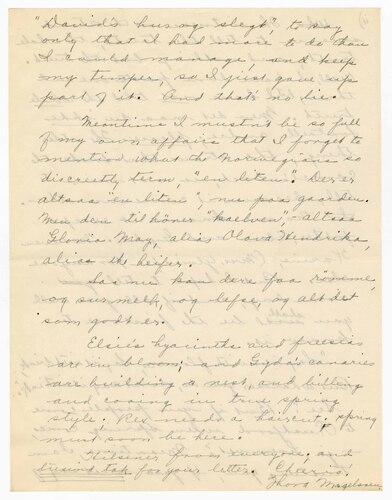 "David's hus og slegt", to say
only that it had more to do than
I could manage, and keep
my temper, so I just gave up
part of it. And that's no lie.
Meantime I must not be so full
of my own affairs that I forget to
mention what the Norwegians so
discreetly term, "en liten". Der er
altsaa "en liten" nu paa gaarden.
Men den tilhörer "kaelven", - altsaa
Gloria May, alias Olava Hendrika,
alias the heifer.
Saa nu kan dere faa römme,
og sur melk, og lefse, og alt det
som godt er.
Elsie's hyacinths and freesias
are in bloom, and Gyda's canaries
are building a nest, and billing
and cooing in true spring
style. Rex needs a haircut, spring
must soon be here.
Hilsener from everyone, and
tusend tak for your letter. Cheerio!
Thora Magelssen